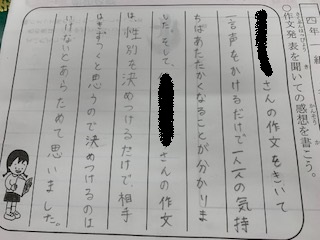 四年 組
○作文発表を聞いての感想を書こう。
さんの作文をきいて
一言声をかけるだけで一人一人の気持
ちばあたたかくなることが分かりま
した。そして、さんの作文
は、性別を決めつけるだけで、相手
はきずつくと思うので決めつけるのは
いけないとあらためて思いました。